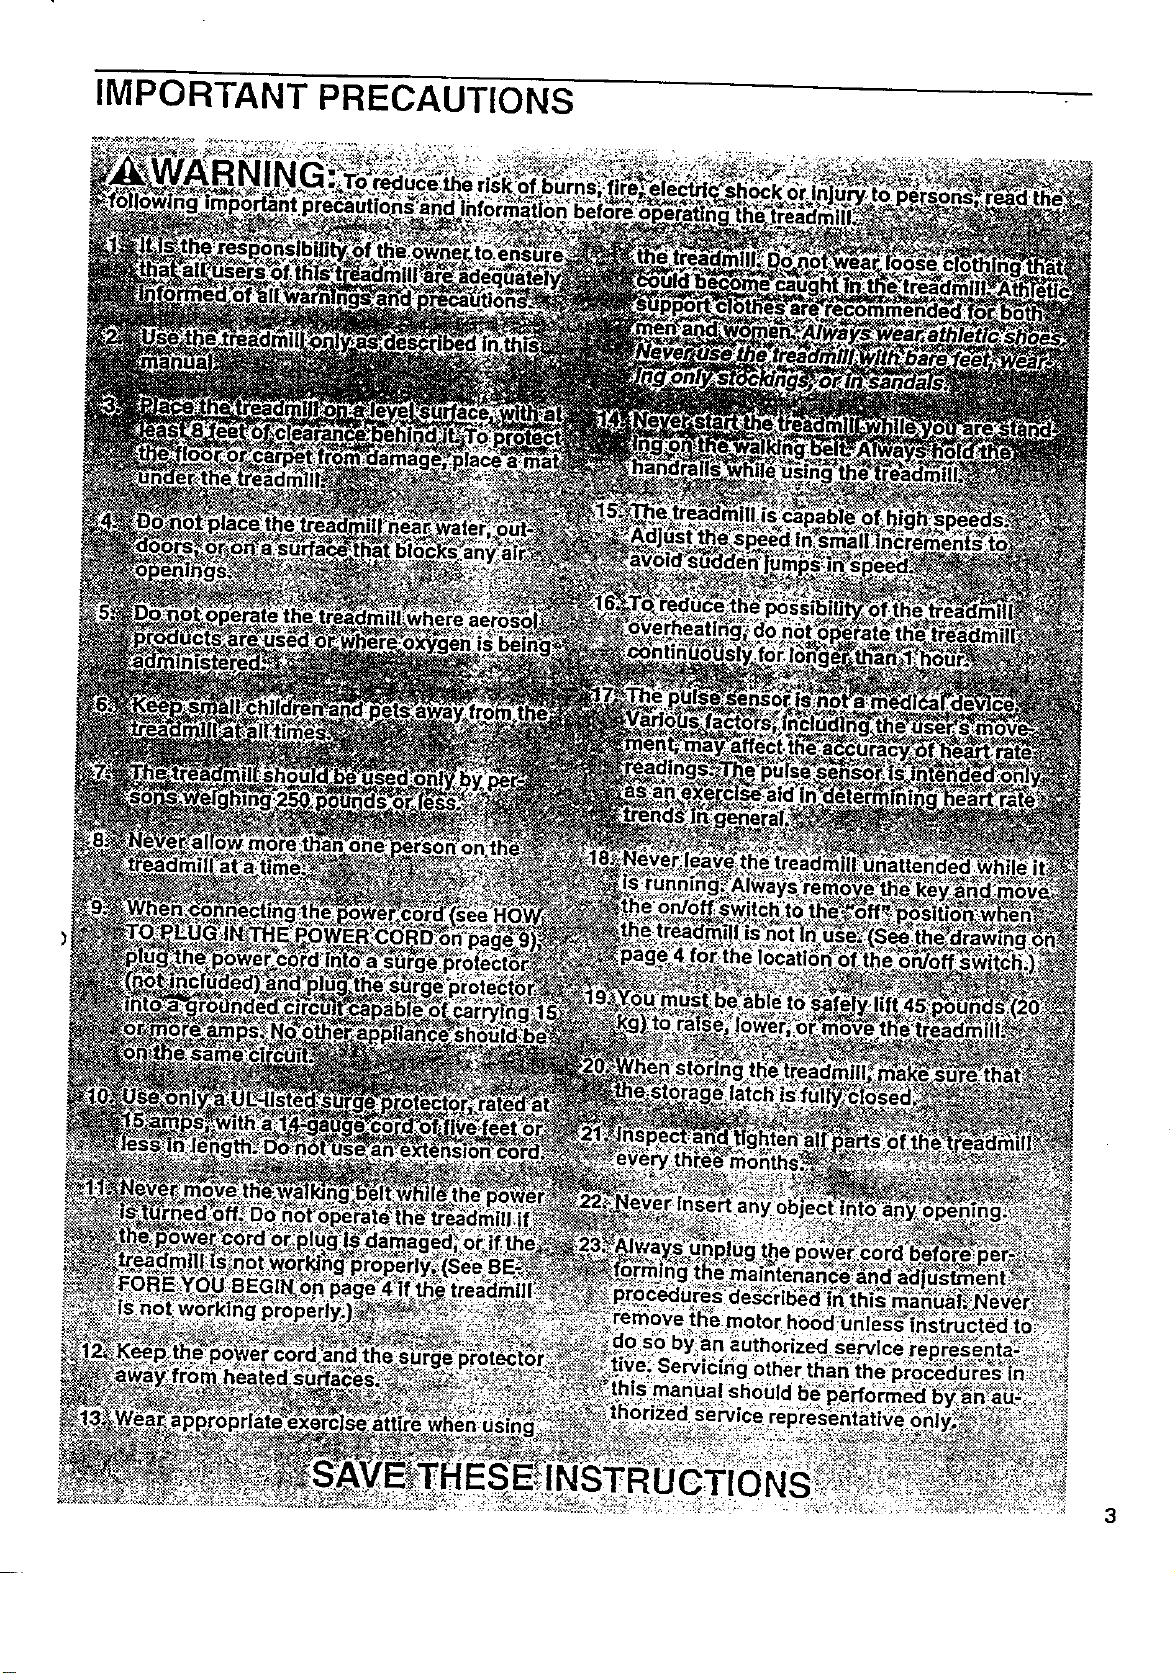 IMPORTANT PRECAUTIONS
WARNING: To reduce the risk of burns, fire, electric shock or injury to persons, read the
following important precautions and information before operating the treadmill.
1. It is the responsibility of the owner to ensure
that all users of this treadmill are adequately
informed of all warnings and precautions.
2. Use the treadmill only as described in this
manual.
3. Place the treadmill on a level surface, with at
least 8 feet of clearance behind it. To protect
the floor or carpet from damage, place a mat
under the treadmill.
4. Do not place the treadmill near water, out-
doors, or on a surface that blocks any air
openings.
5. Do not operate the treadmill where aerosol
products are used or where oxygen is being
administered.
6. Keep small children and pets away from the
treadmill at all times.
7. The treadmill should be used only by per-
sons weighing 250 pounds or less.
8. Never allow more than one person on the
treadmill at a time.
9. When connecting the power cord (see HOW
TO PLUG IN THE POWER CORD on page 9),
plug the power cord into a surge protector
(not included) and plug the surge protector
into a grounded circuit capable of carrying 15
or more amps. No other appliance should be
on the same circuit.
10. Use only a UL-listed surge protector, rated at
15 amps, with a 14-gauge cord of five feet or
less in length. Do not use an extension cord.
11. Never move the walking belt while the power
is turned off. Do not operate the treadmill if
the power cord or plug is damaged, or if the
treadmill is not working properly. (See BE-
FORE YOU BEGIN on page 4 if the treadmill
is not working properly.)
12. Keep the power cord and the surge protector
away from heated surfaces.
13. Wear appropriate exercise attire when using
the treadmill. Do not wear loose clothing that
could become caught in the treadmill. Athletic
support clothes are recommended for both
men and women. Always wear athletic shoes.
Never use the treadmill with bare feet, wear-
ing only stockings, or in sandals.
14. Never start the treadmill while you are stand-
ing on the walking belt. Always hold the
handrails while using the treadmill.
15. The treadmill is capable of high speeds.
Adjust the speed in small increments to
avoid sudden jumps in speed.
16. To reduce the possibility of the treadmill
overheating, do not operate the treadmill
continuously for longer than 1 hour.
17. The pulse sensor is not a medical device.
Various factors, including the user's move-
ment, may affect the accuracy of heart rate
readings. The pulse sensor is intended only
as an exercise aid in determining heart rate
trends in general.
18. Never leave the treadmill unattended while it
is running. Always remove the key and move
the on/off switch to the "off" position when
the treadmill is not in use. (See the drawing on
page 4 for the location of the on/off switch.)
19. You must be able to safely lift 45 pounds (20
kg) to raise, lower, or move the treadmill.
20. When storing the treadmill, make sure that
the storage latch is fully closed.
21. Inspect and tighten all parts of the treadmill
every three months.
22. Never insert any object into any opening.
23. Always unplug the power cord before per-
forming the maintenance and adjustment
procedures described in this manual. Never
remove the motor hood unless instructed to
do so by an authorized service representa-
tive. Servicing other than the procedures in
this manual should be performed by an au-
thorized service representative only.
SAVE THESE INSTRUCTIONS
3